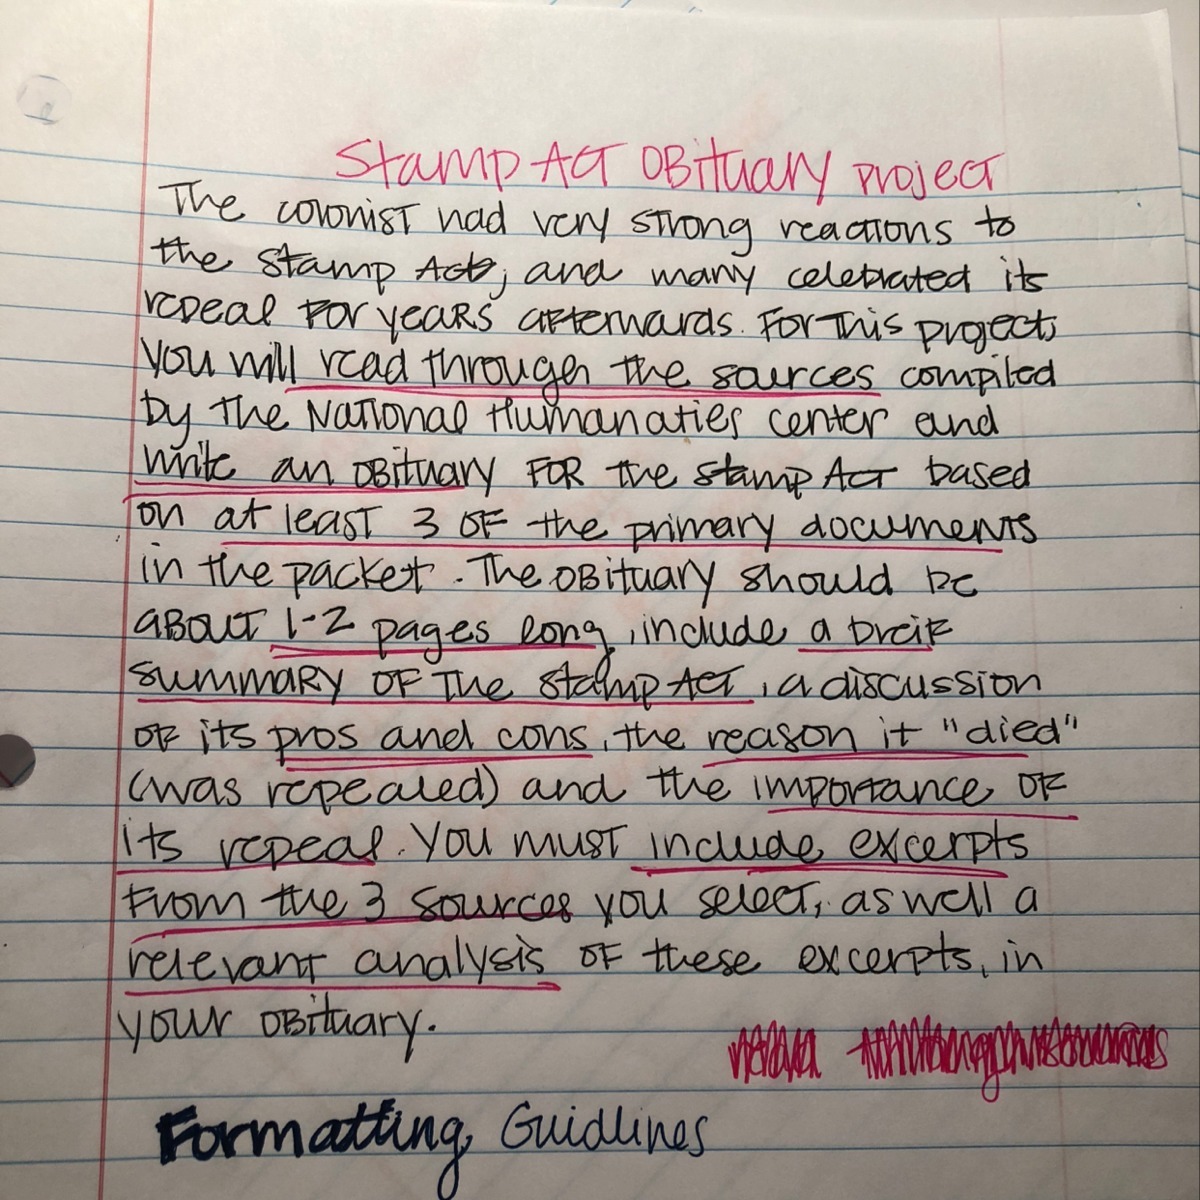 Stamp Act Obituary Project
The colonist had very strong reactions to
the Stamp Act, and many celebrated its
repeal for years afterwards. For this project,
you will read through the sources compiled
by the National Humanaties center and
write an obituary for the Stamp Act based
on at least 3 of the primary documents
in the packet. The obituary should be
about 1-2 pages long, include a breif
summary of the Stamp Act, a discussion
of its pros and cons, the reason it "died"
(was repealed) and the importance of
its repeal. You must include excerpts
from the 3 sources you select, as well a
relevant analysis of these excerpts, in
your obituary.
Formatting Guidlines